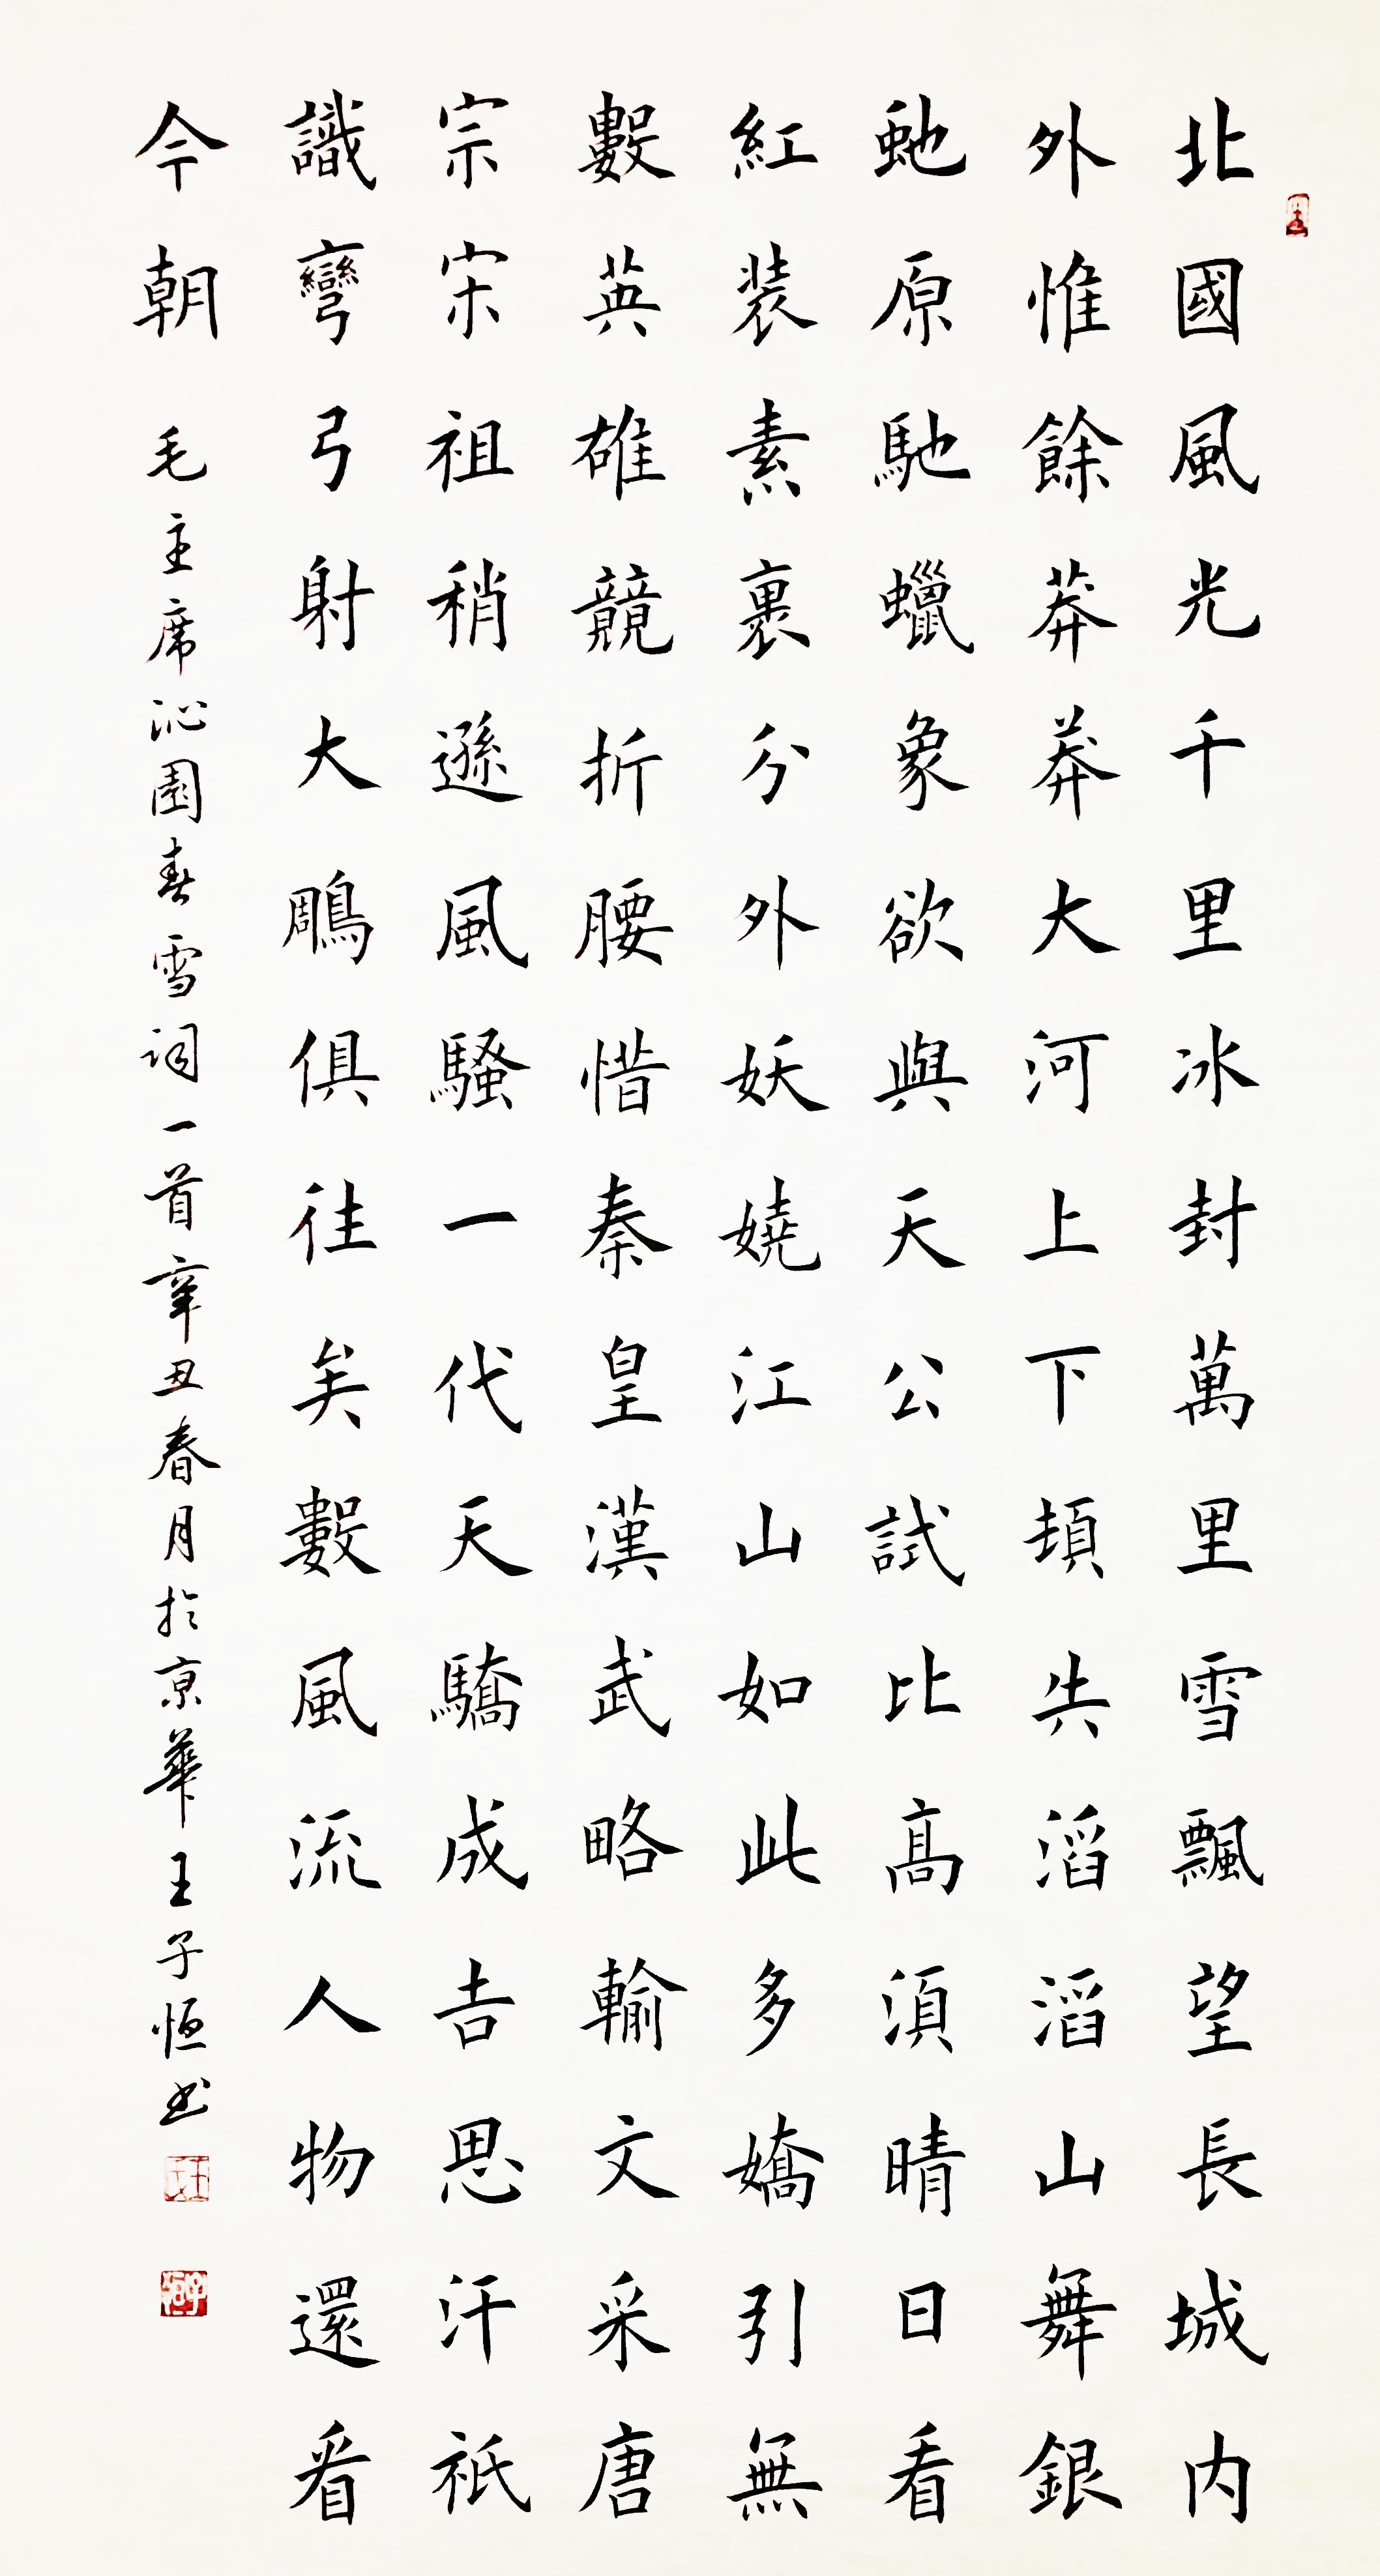 北國風光千里冰封萬里雪飄望長城内
外惟餘莽莽大河上下頓失滔滔山舞銀
虵原馳蠟象欲與天公試比高須晴日看
紅装素裹分外妖嬈江山如此多嬌引無
數英雄競折腰惜秦皇漢武略輸文采唐
宗宋祖稍遜風騷一代天驕成吉思汗衹
識彎弓射大鵰俱往矣數風流人物還看
今朝
毛主席沁園春雪詞一首辛丑春月於京華王子恒书